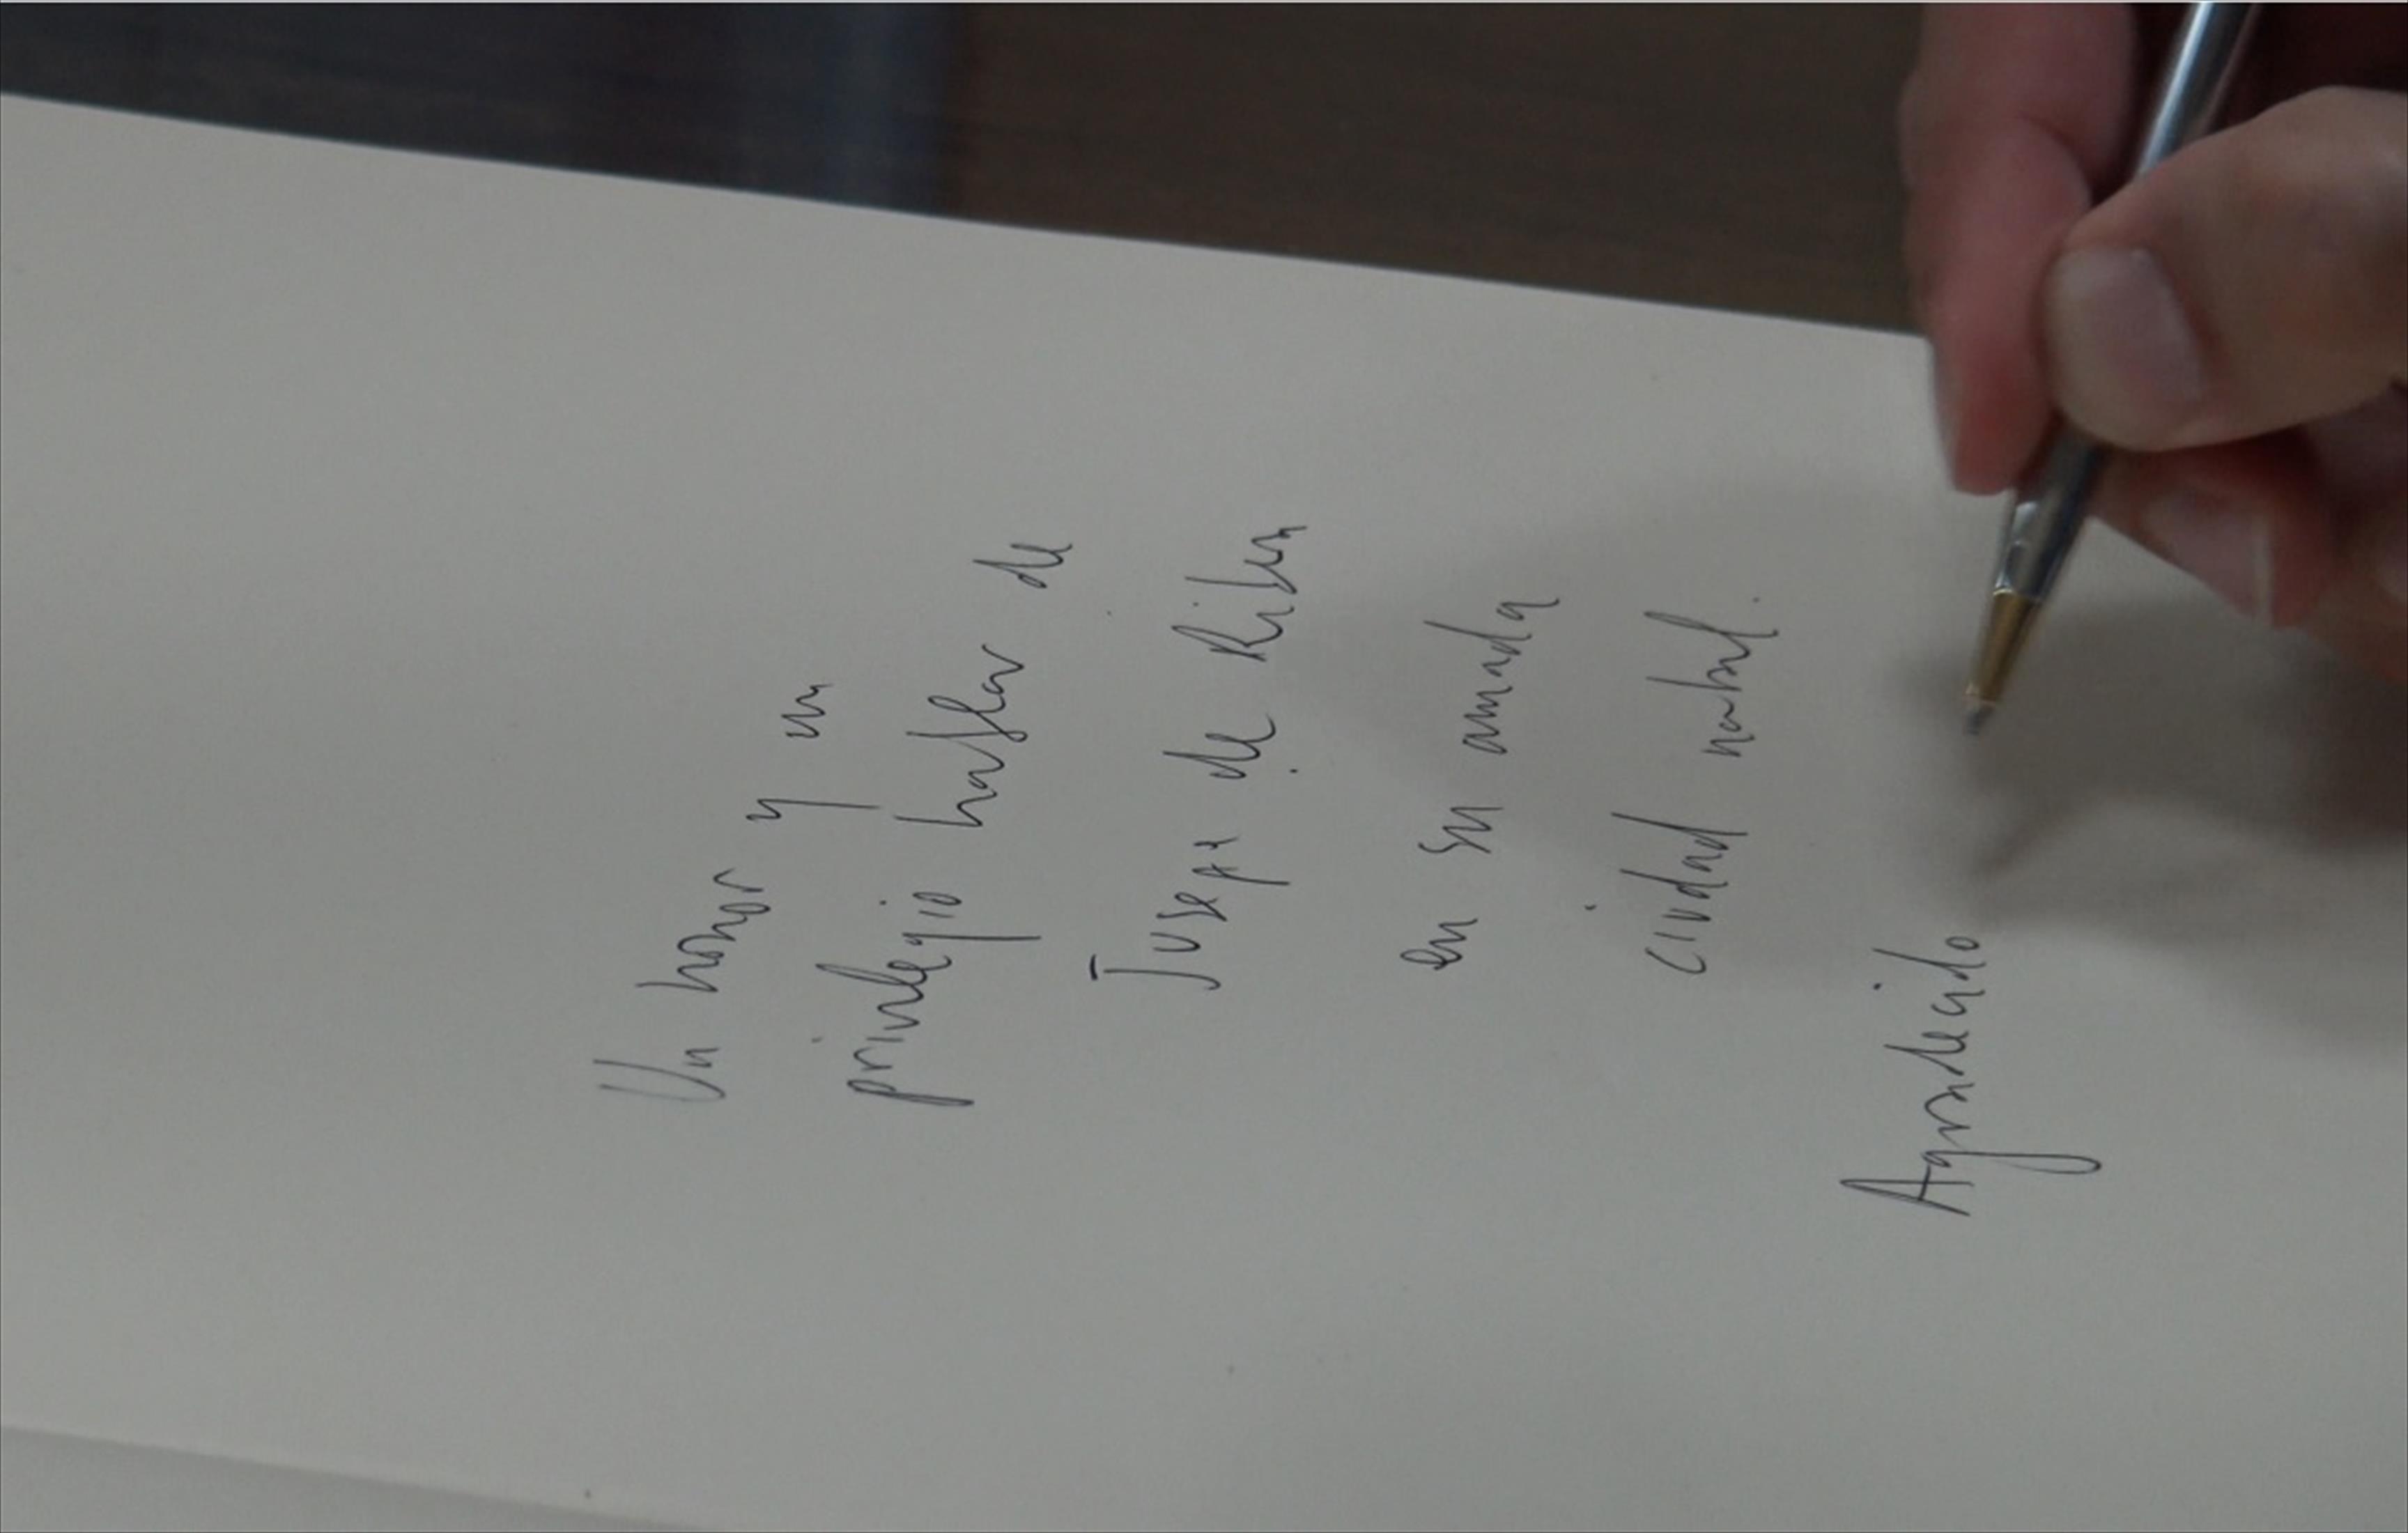 Un honor y un
privilegio hablar de
Jusepe de Ribera
en su amada
ciudad natal.
Agradecido